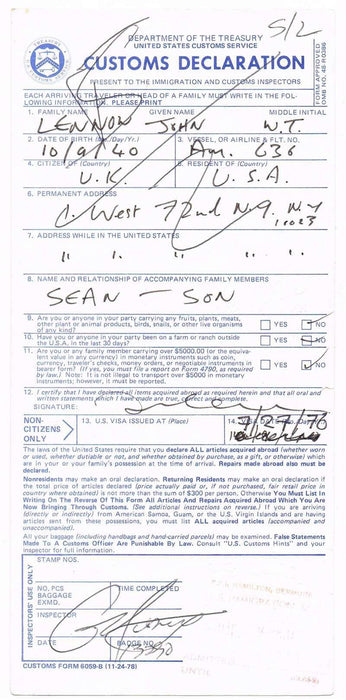 5/2
DEPARTMENT OF THE TREASURY
UNITED STATES CUSTOMS SERVICE
CUSTOMS DECLARATION
PRESENT TO THE IMMIGRATION AND CUSTOMS INSPECTORS
FORM APPROVED
OMB NO. 48-RO386
EACH ARRIVING TRAVELER OR HEAD OF FAMILY MUST WRITE IN THE FOL-
LOWING INFORMATION. PLEASE PRINT
1. FAMILY NAME GIVEN NAME MIDDLE INITIAL
LENNON JOHN W.T.
2. DATE OF BIRTH (Mo./Day/Yr.) 3. VESSEL, OR AIRLINE & FLT. NO.
10/9/40 Am. 636
4. CITIZEN OF (Country) 5. RESIDENT OF (Country)
U.K. U.S.A.
6. PERMANENT ADDRESS
1. West 72nd N.Y. N.Y
10023
7. ADDRESS WHILE IN THE UNITED STATES
" " " " "
8. NAME AND RELATIONSHIP OF ACCOMPANYING FAMILY MEMBERS
SEAN - SON
9. Are you or anyone in your party carrying any fruits, plants, meats,
other plant or animal products, birds, snails, or other live organisms
of any kind? YES NO
10. Have you or anyone in your party been on a farm or ranch outside
the U.S.A. in the last 30 days? YES NO
11. Are you or any family member carrying over $5000.00 (or the equiva-
lent value in any currency) in monetary instruments such as coin,
currency, traveler's checks, money orders, or negotiable instruments in
bearer form? (If yes, you must file a report on Form 4790, as required
by law.) Note: It is not illegal to transport over $5000 in monetary
instruments; however, it must be reported. YES NO
12. I certify that I have declared all items acquired abroad as required herein and that all oral and
written statements which I have made are true, correct and complete.
SIGNATURE:
NON-
CITIZENS
ONLY
13. U.S. VISA ISSUED AT (Place)
The laws of the United States require that you declare ALL articles acquired abroad (whether worn
or used, whether dutiable or not, and whether obtained by purchase, as a gift, or otherwise) which
are in your or your family's possession at the time of arrival. Repairs made abroad also must be
declared.
Nonresidents may make an oral declaration. Returning Residents may make an oral declaration if
the total price of articles declared (price actually paid or, if not purchased, fair retail price in
country where obtained) is not more than the sum of $300 per person. Otherwise You Must List In
Writing On The Reverse Of This Form All Articles And Repairs Acquired Abroad Which You Are
Now Bringing Through Customs. (See additional instructions on reverse.) If you are arriving
(directly or indirectly) from American Samoa, Guam, or the U.S. Virgin Islands and are having
articles sent from these possessions, you must list ALL articles (accompanied and
unaccompanied).
All your baggage (including handbags and hand-carried parcels) may be examined. False Statements
Made To A Customs Officer Are Punishable By Law. Consult "U.S. Customs Hints" and your
inspector for full information.
INSPECTORS' USE ONLY
STAMP NOS.
NO. PCS
BAGGAGE
EXMD.
TIME COMPLETED
INSPECTOR
DATE BADGE NO.
UNTIL
CUSTOMS FORM 6059-B (11-24-78)